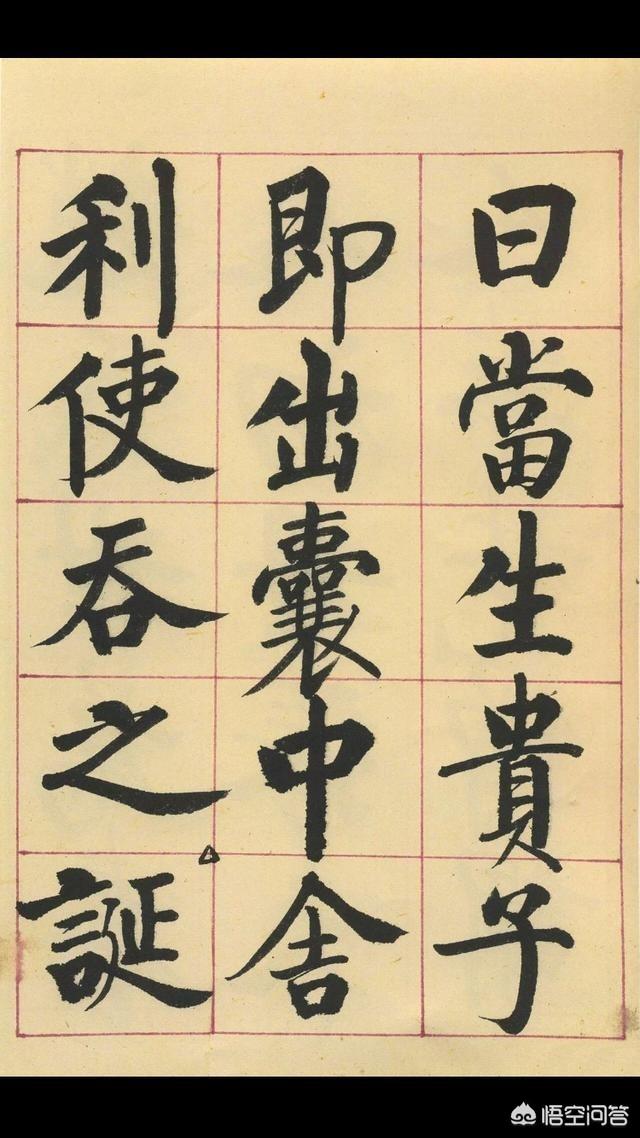 曰當生貴子
即出囊中舍
利使吞之誕
悟空问答